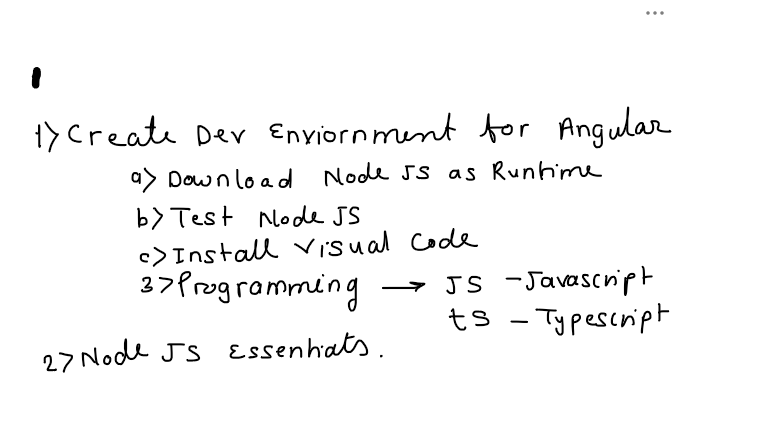 1> Create Dev Enviornment for Angular
a> Download Node JS as Runtime
b> Test Node JS
c> Install Visual Code
3> Programming → JS - Javascript
ts - Typescript
2> Node JS Essentials.